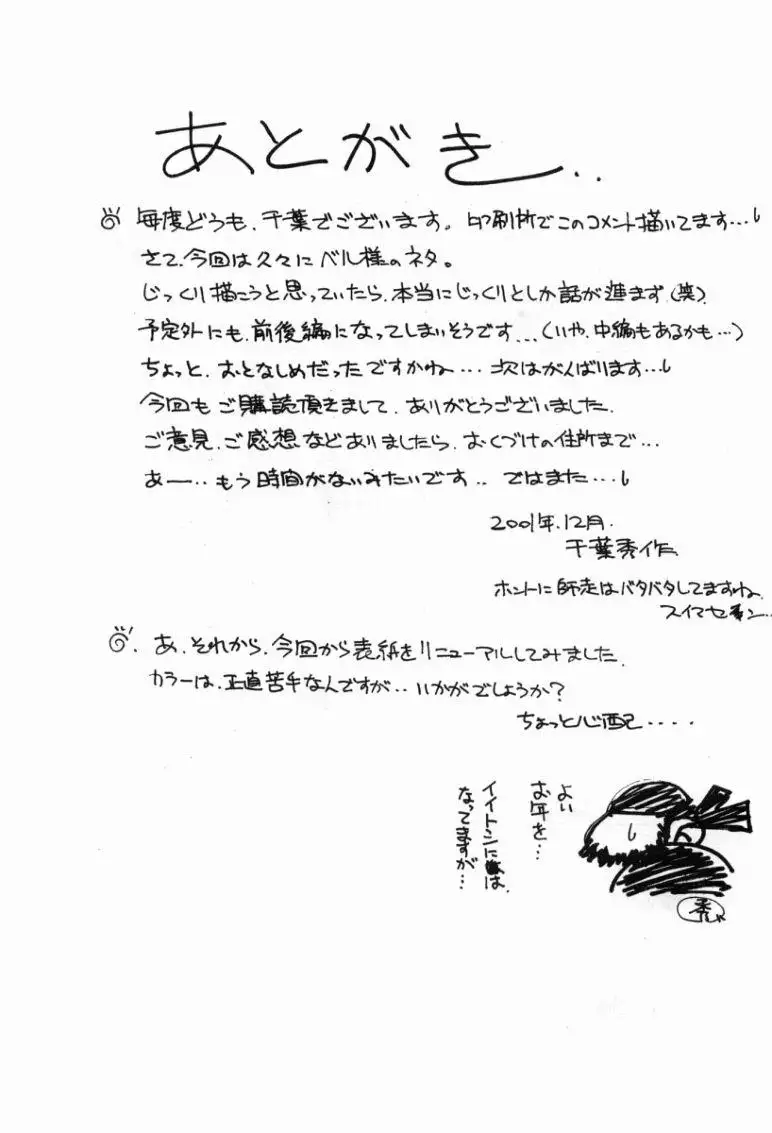 あとがき..
毎度どうも、千葉でございます。印刷所でこのコメント描いてます…
さて、今回は久々にベル様のネタ。
じっくり描こうと思っていたら、本当にじっくりとしか話が進まず(笑)。
予定外にも、前後編になってしまいそうです...(いや、中編もあるかも…)
ちょっと、おとなしめだったですかね…次はがんばります…
今回もご購読頂きまして、ありがとうございました。
ご意見、ご感想などありましたら、おくづけの住所まで…
あー‥もう時間がないみたいです‥ではまた…
2001年.12月.
千葉秀作
ホントに師走はバタバタしてますね。
スイマセン…
あ、それから、今回から表紙をリニューアルしてみました。
カラーは、正直苦手なんですが‥いかがでしょうか?
ちょっと心配....
よい
お年を…
イイトシには
なってますが…
秀